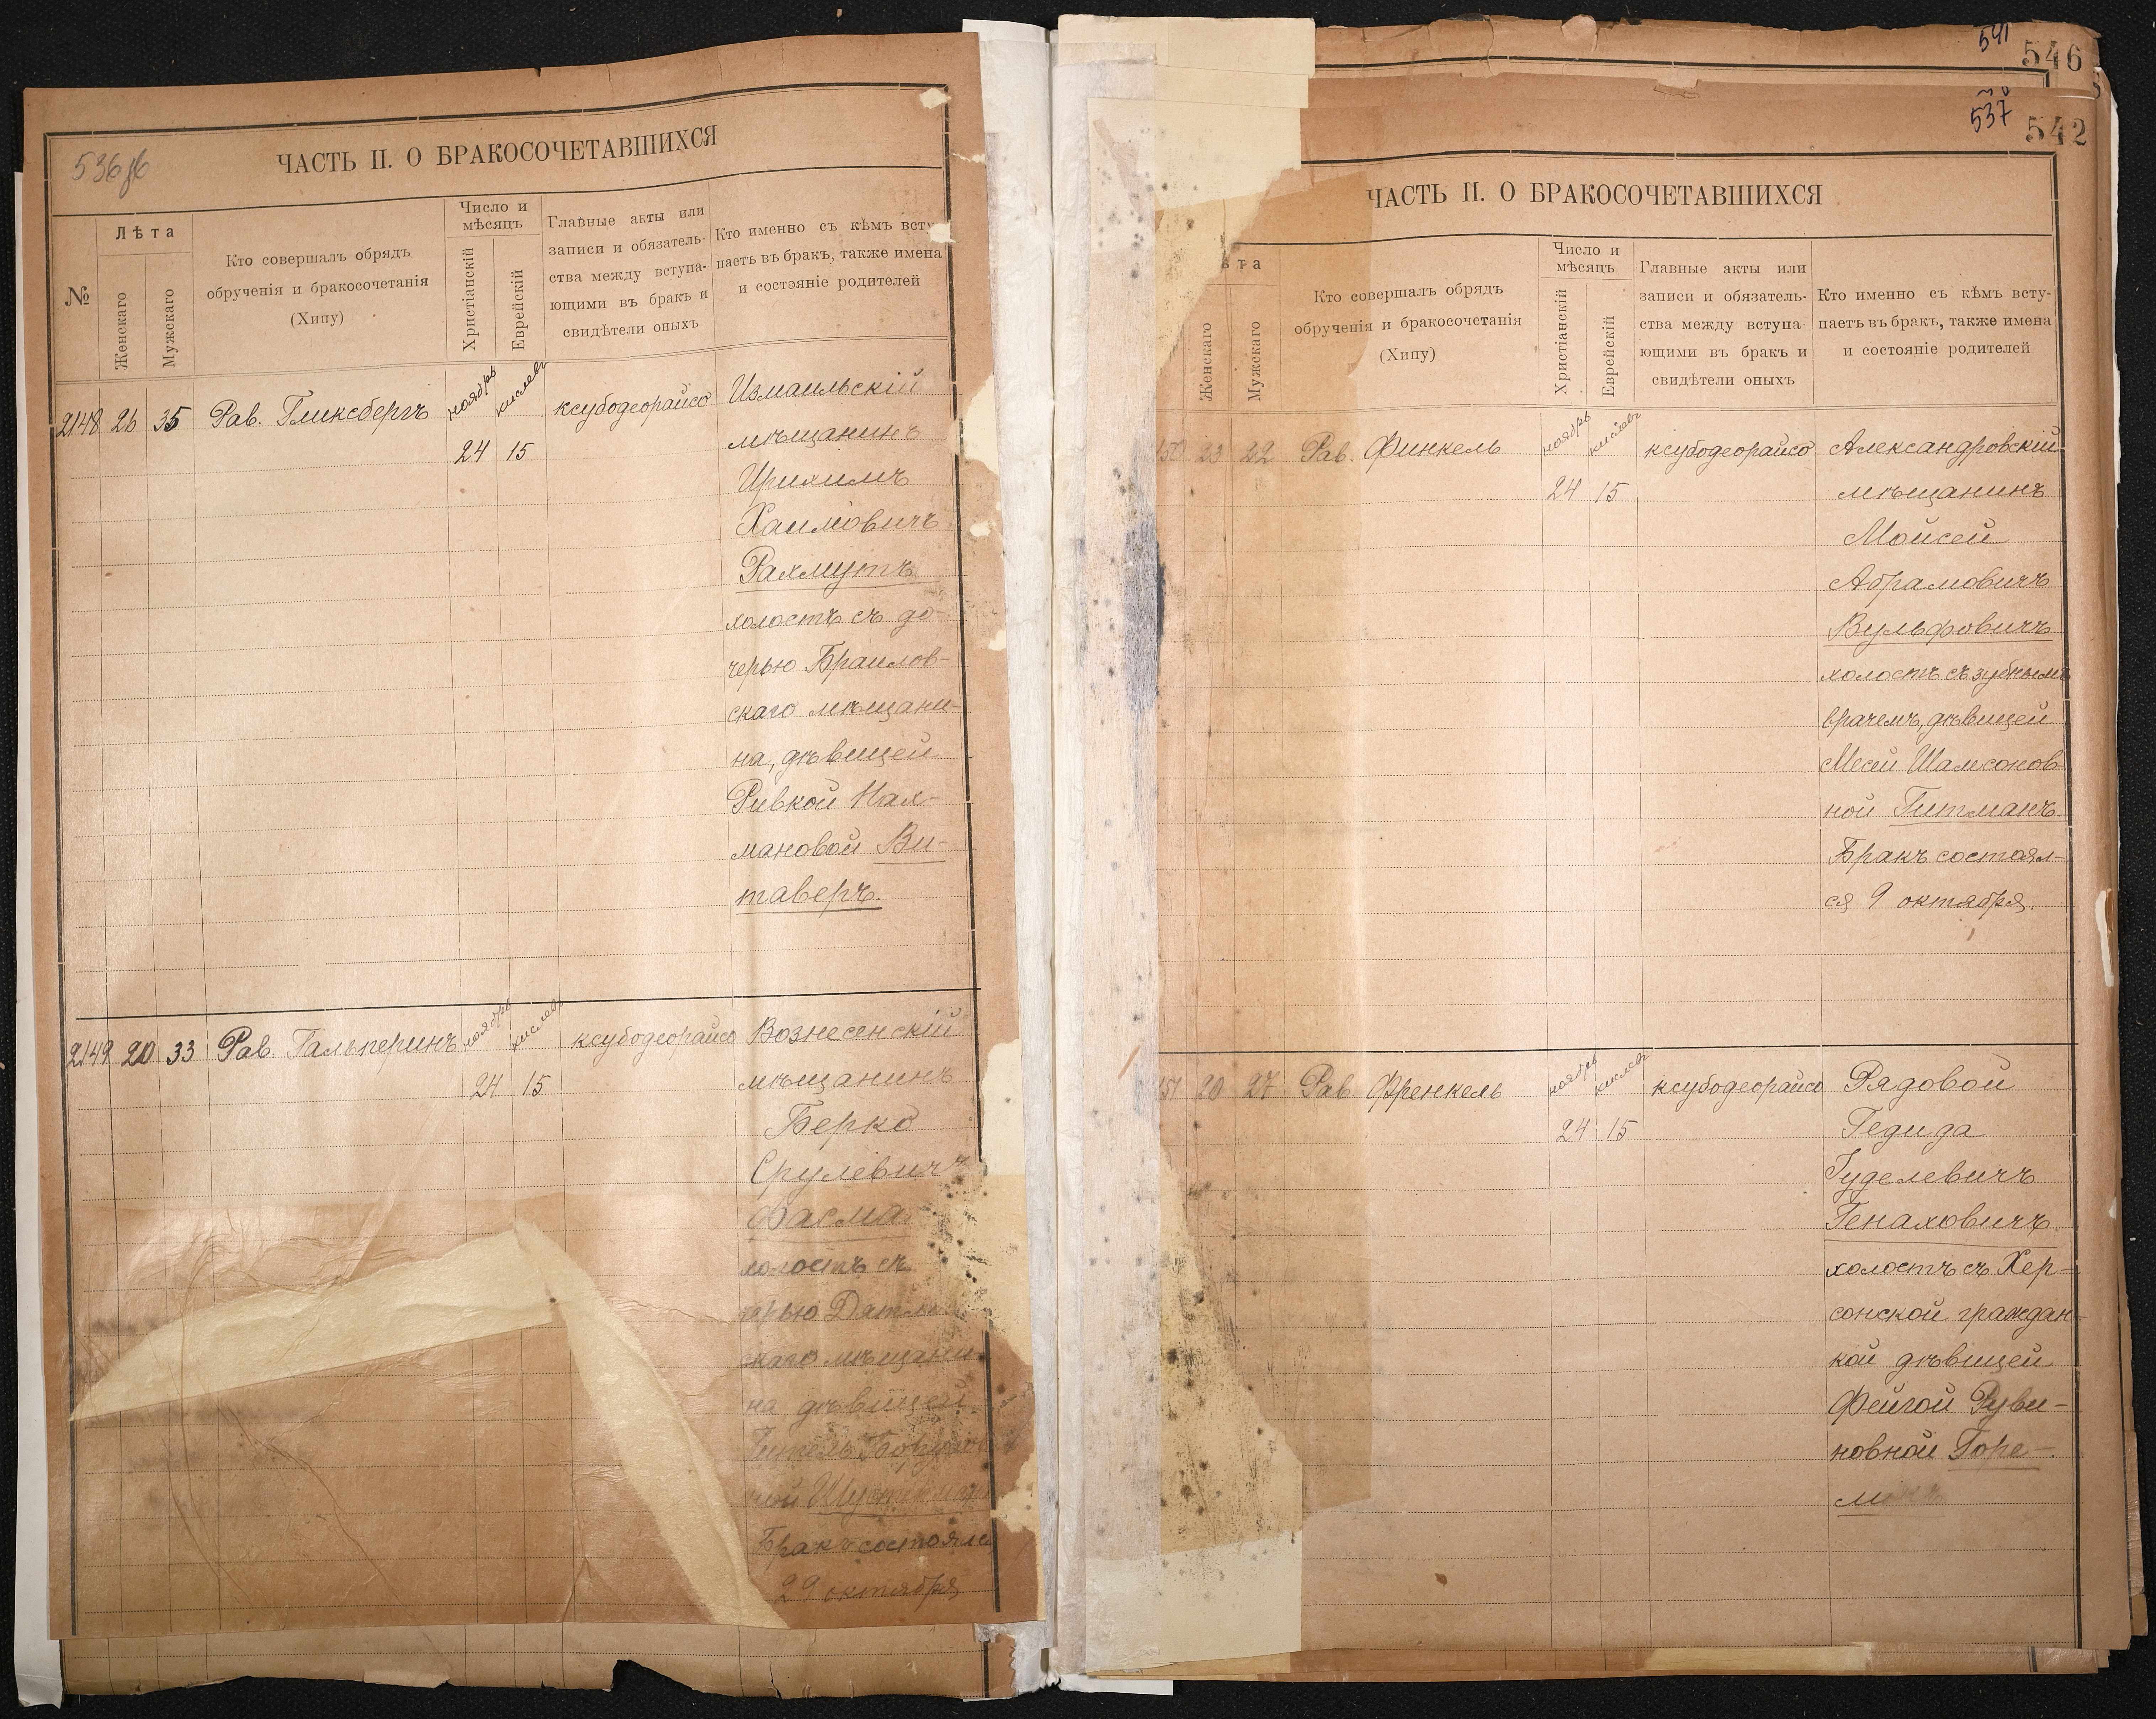 536об
ЧАСТЬ II. О БРАКОСОЧЕТАВШИХСЯ
№
Лѣта
Женскаго
Мужскаго
Кто совершалъ обрядъ
обрученія и бракосочетанія
(Хипу)
Число и
мѣсяцъ
Христіанскій
Еврейскій
Главные акты или
записи и обязатель-
ства между вступа-
ющими въ бракъ и
свидѣтели оныхъ
Кто именно съ кѣмъ всту
паетъ въ бракъ, также имена
и состояніе родителей
2148 26 35 Рав. Гликсбергъ ноябрь кислевъ ксубодеорайсо Измаильскій
24 15 мѣщанинъ
Хаимовичъ
Рахмутъ
холостъ съ до-
черью Браилов-
скаго мѣщани-
на, дѣвицей
Ривкой Нах-
мановой Ви-
таверъ.
2149 20 33 Рав. Гальперинъ ноябрь кислевъ ксубодеорайсо Вознесенскій
24 15 мѣщанинъ
Берко
Срулевичъ
Фасма
холостъ съ
черью
скаго мѣщани
на дѣвицей
Бракъ состоялся
29 октября
541
546
537
542
ЧАСТЬ II. О БРАКОСОЧЕТАВШИХСЯ
ѣта
Женскаго
Мужскаго
Кто совершалъ обрядъ
обрученія и бракосочетанія
(Хипу)
Число и
мѣсяцъ
Христіанскій
Еврейскій
Главные акты или
записи и обязатель-
ства между вступа-
ющими въ бракъ и
свидѣтели оныхъ
Кто именно съ кѣмъ всту-
паетъ въ бракъ, также имена
и состояніе родителей
150 23 22 Рав. Финкель ноябрь кислевъ ксубодеорайсо Александровскій
24 15 мѣщанинъ
Мойсей
Абрамовичъ
Вульфовичъ
холостъ съ зубнымъ
врачемъ, дѣвицей
Месей Шамсонов
ной Гитманъ.
Бракъ состоял-
ся 9 октября.
151 20 27 Рав. Френкель ноябрь кислевъ ксубодеорайсо Рядовой
24 15 Гедида
Гуделевичъ
Генаховичъ.
холостъ съ Хер-
сонской граждан
кой дѣвицей
Фейгой Руви-
новной Горе-